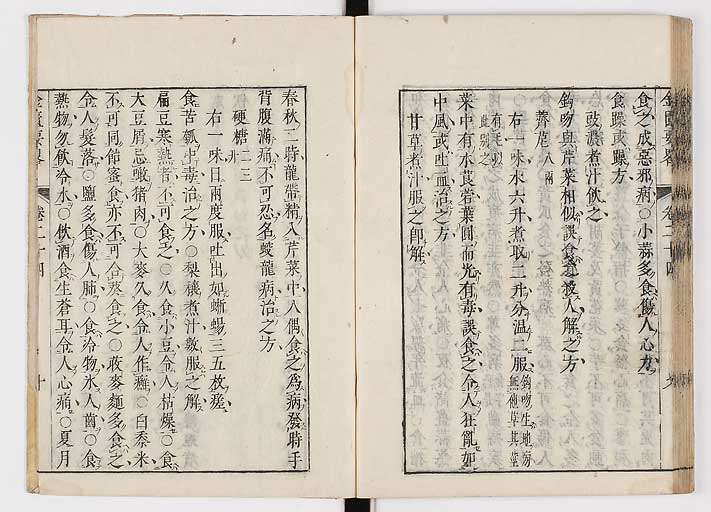 食多成惡邪病〇小蒜多食傷人心力
食躁或躁方
豉濃煮汁飲之
鉤吻與芹菜相似誤食之殺人解之方
薺苨八兩
右一味水六升煮取二升分温二服鉤吻生地傍無他草其莖有毛以此別之
菜中有水莨菪葉圓而光有毒誤食之令人狂亂如
中風或吐血治之方
甘草煮汁服之即解
春秋二時龍帶精入芹菜中人偶食之為病發時手
背腹滿痛不可忍名蛟龍病治之方
硬糖二三升
右一味日兩度服吐出如蜥蜴三五枚瘥
食苦瓠中毒治之方〇梨穰煮汁數服之解
扁豆寒熱者不可食之〇久食小豆令人枯燥〇食
大豆屑忌噉猪肉〇大麥久食令人作癬〇白黍米
不可同飴蜜食亦不可合葵食之〇蕎麥麵多食之
令人髮落〇鹽多食傷人肺〇食冷物氷人齒〇食
熱物勿飲冷水〇飲酒食生蒼耳令人心痛〇夏月
金匱要畧 卷二十四 十